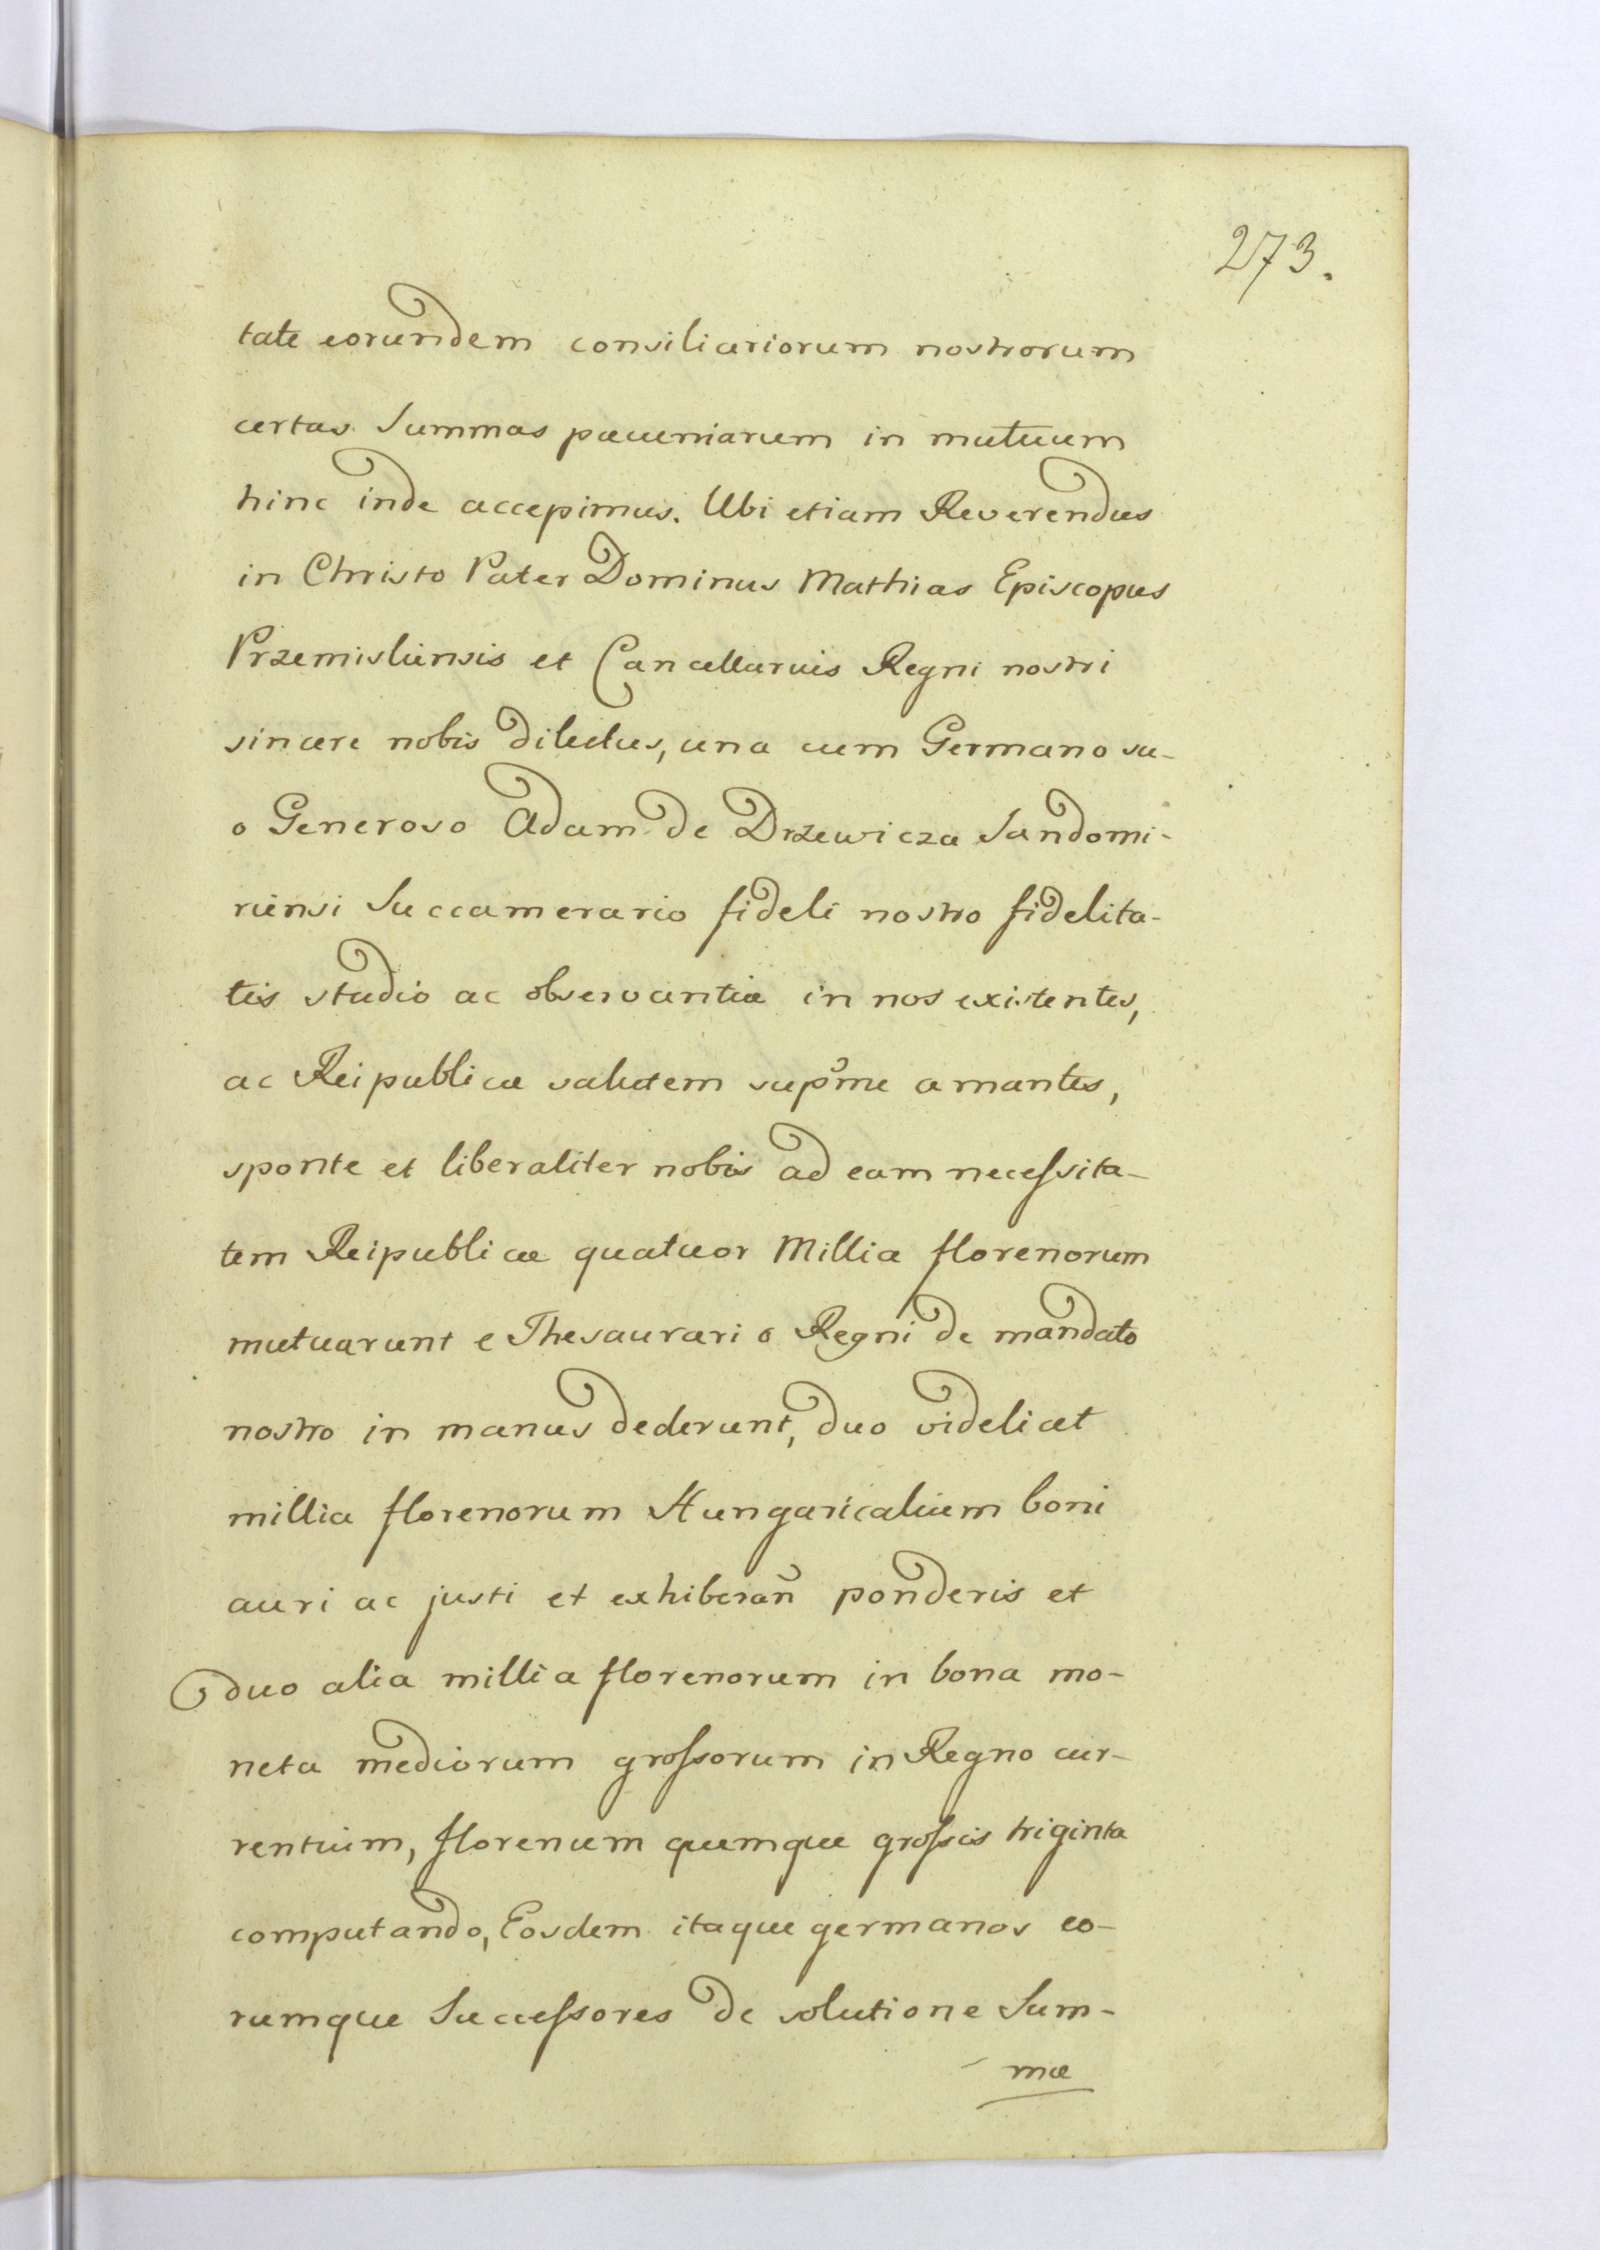 273.
tate eorundem consiliariorum nostrorum
certas Summas pæcuniarum in mutuum
hinc inde accepimus. Ubi etiam Reverendus
in Christo Pater Dominus Mathias Episcopus
Przemisliensis et Cancellarius Regni nostri
sincere nobis dilectus, una cum Germano su-
o Generoso Adam de Drzewicza Sandomi-
riensi Succamerario fideli nostro fidelita-
tis studio ac observantiæ in nos existentes,
ac Reipublicæ salutem sup̃me amantes,
sponte et liberaliter nobis ad eam necessita-
tem Reipublicæ quatuor Millia florenorum
mutuarunt e Thesaurario Regni de mandato
nostro in manus dederunt, duo videlicet
millia florenorum Hungaricalium boni
auri ac justi et exhiberañ ponderis et
duo alia millia florenorum in bona mo-
neta mediorum grossorum in Regno cur-
rentium, florenum quemque grossis triginta
computando, Eosdem itaque germanos eo-
rumque Successores de solutione Sum-
mæ